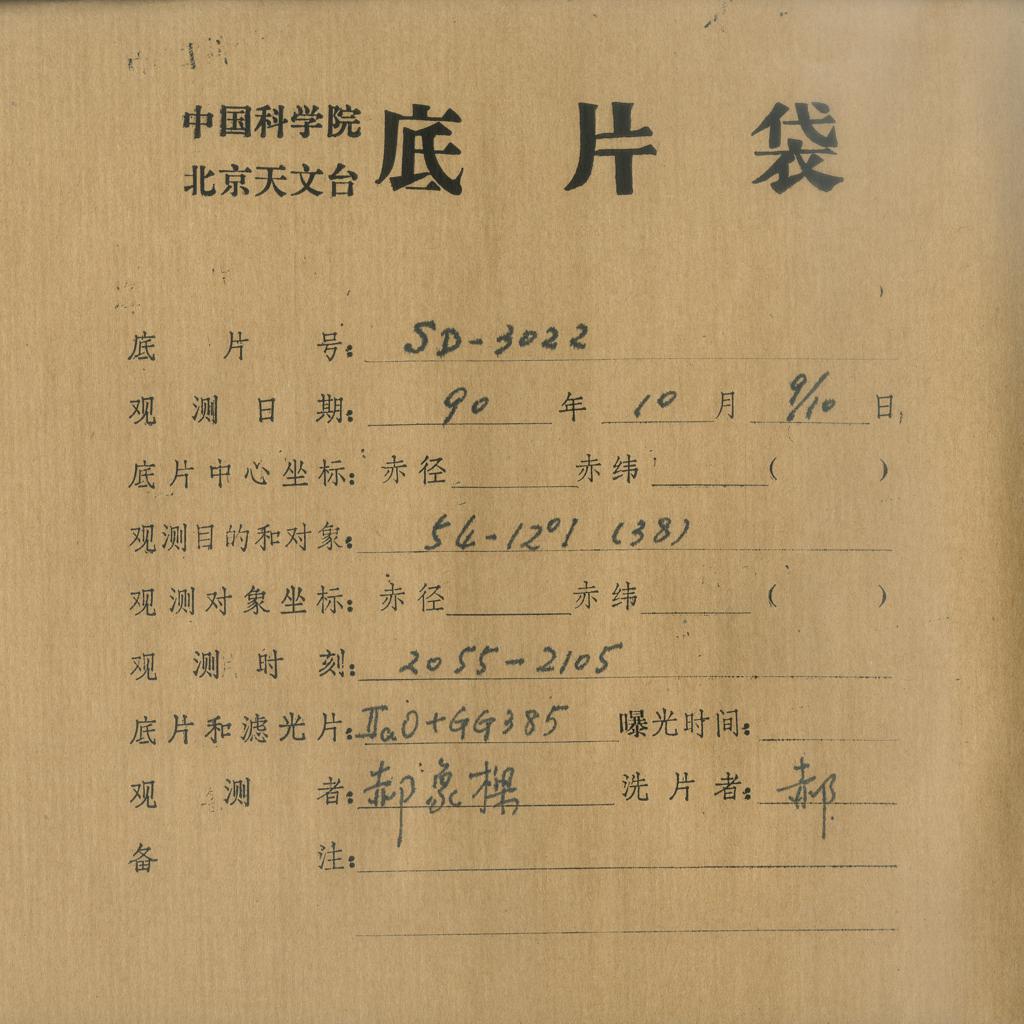 中国科学院
北京天文台
底片袋
底片号：SD-3022
观测日期：90年10月9/10日
底片中心坐标：赤径 赤纬 ( )
观测目的和对象：54-12°1 (38)
观测对象坐标：赤径 赤纬 ( )
观测时刻：2055-2105
底片和滤光片：IIaO+GG385 曝光时间：
观测者：郝象樑 洗片者：郝
备注：